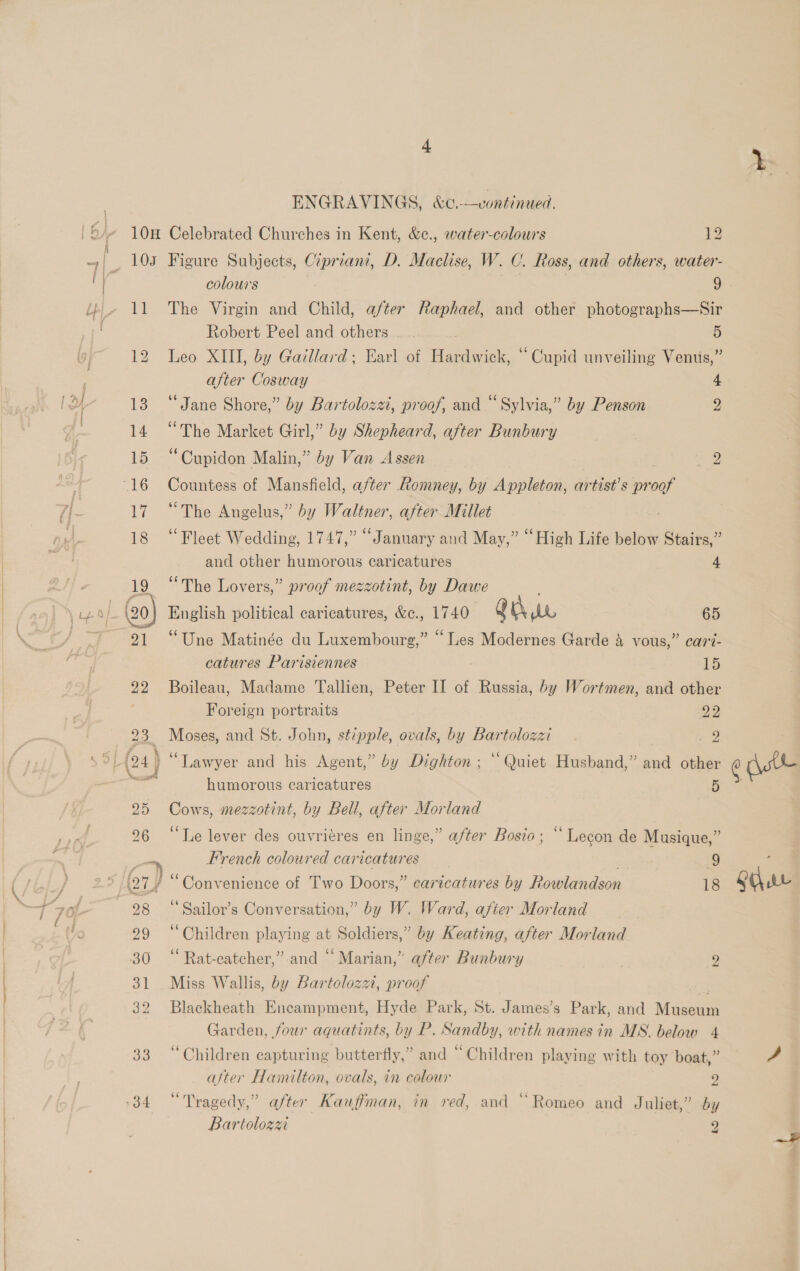 4
ENGRAVINGS, &c.—continued.
10H Celebrated Churches in Kent, &c., water-colours 12
10J Figure Subjects, Cipriani, D. Maclise, W. C. Ross, and others, water-
colours 9
11 The Virgin and Child, after Raphael, and other photographs—Sir
Robert Peel and others 5
12 Leo XIII, by Gaillard; Earl of Hardwick, “Cupid unveiling Venus,”
after Cosway 4
13 “Jane Shore,” by Bartolozzi, proof, and “Sylvia,” by Penson 2
14 “The Market Girl,” by Shepheard, after Bunbury
15 “Cupidon Malin,” by Van Assen 2
16 Countess of Mansfield, after Romney, by Appleton, artist’s proof
17 “The Angelus,” by Waltner, after Millet
18 “Fleet Wedding, 1747,” “January and May,” “High Life below Stairs,”
and other humorous caricatures 4
19 “The Lovers,” proof mezzotint, by Dawe
20 English political caricatures, &c., 1740 65
21 “Une Matinée du Luxembourg,” “Les Modernes Garde à vous,” cari-
catures Parisiennes 15
22 Boileau, Madame Tallien, Peter II of Russia, by Wortmen, and other
Foreign portraits 22
23 Moses, and St. John, stipple, ovals, by Bartolozzi 2
24 “Lawyer and his Agent,” by Dighton; “Quiet Husband,” and other
humorous caricatures 5
25 Cows, mezzotint, by Bell, after Morland
26 “Le lever des ouvrières en linge,” after Bosio; “Leçon de Musique,”
French coloured caricatures 9
27 “Convenience of Two Doors,” caricatures by Rowlandson 18
28 “Sailor’s Conversation,” by W. Ward, after Morland
29 “Children playing at Soldiers,” by Keating, after Morland
30 “Rat-catcher,” and “Marian,” after Bunbury 2
31 Miss Wallis, by Bartolozzi, proof
32 Blackheath Encampment, Hyde Park, St. James’s Park, and Museum
Garden, four aquatints, by P. Sandby, with names in MS. below 4
33 “Children capturing butterfly,” and “Children playing with toy boat,”
after Hamilton, ovals, in colour 2
34 “Tragedy,” after Kauffman, in red, and “Romeo and Juliet,” by
Bartolozzi 2